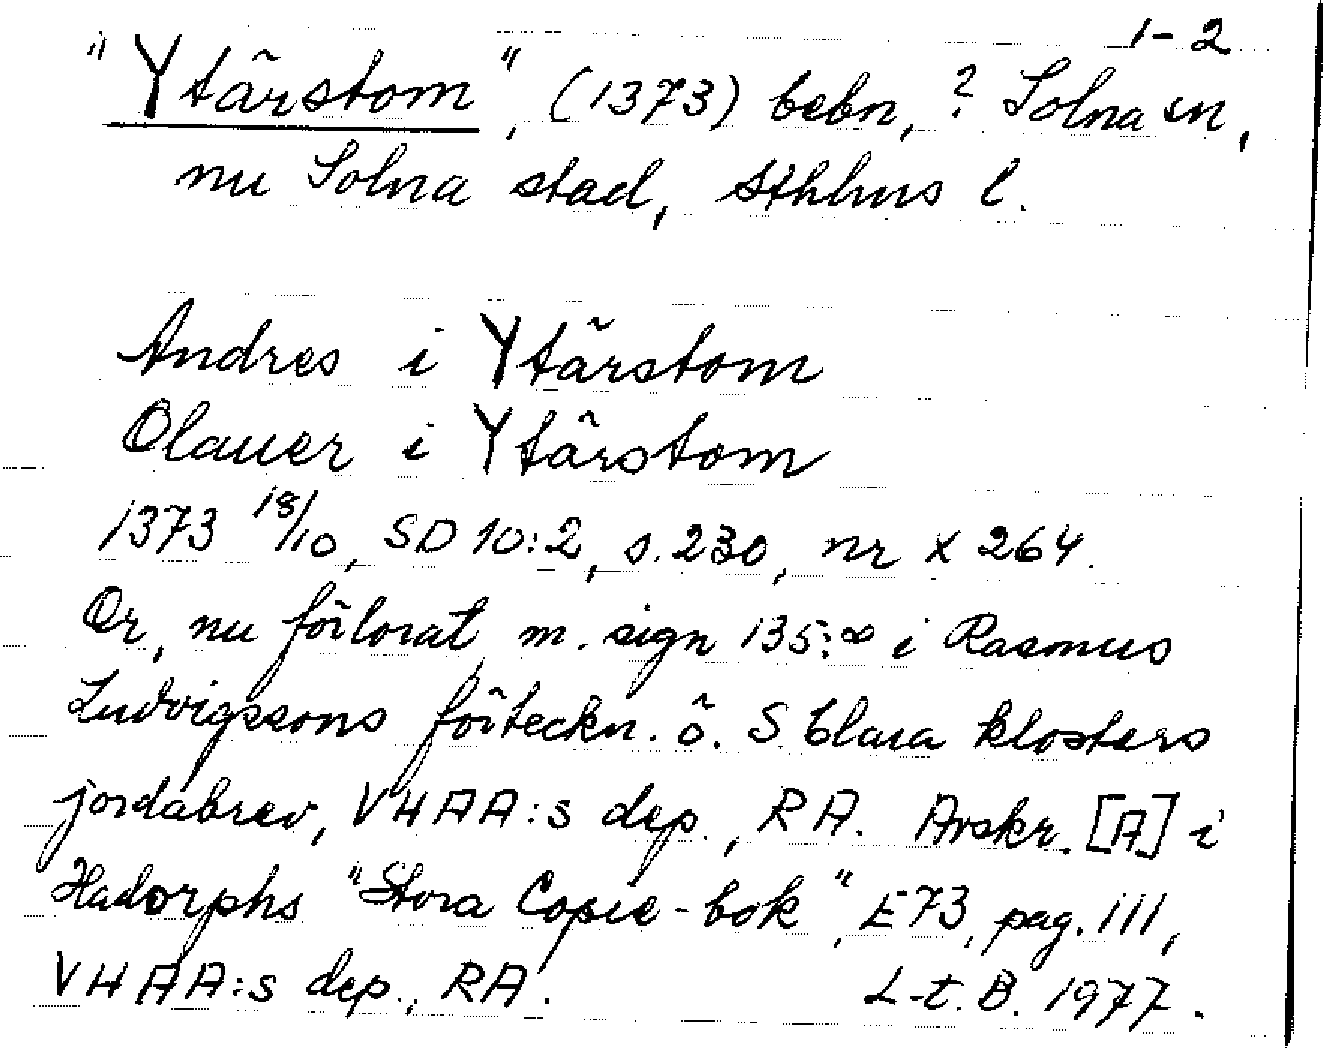 1-2
"Ytärstom", (1373) bebn, ? Solna sn,
nu Solna stad, Sthlms l.
Andres i Ytärstom
Olauer i Ytärstom
1373 18/10, SD 10:2, s. 230, nr X 264.
Or, nu förlorat, m. sign 135:∞ i Rasmus
Ludvigssons förteckn. ö. S Clara klosters
jordabrev, VHAA:s dep., RA. Avskr. [A] i
Hadorphs "Stora Copie-bok", E73, pag. 111,
VHAA:s dep., RA. L-t. B. 1977.